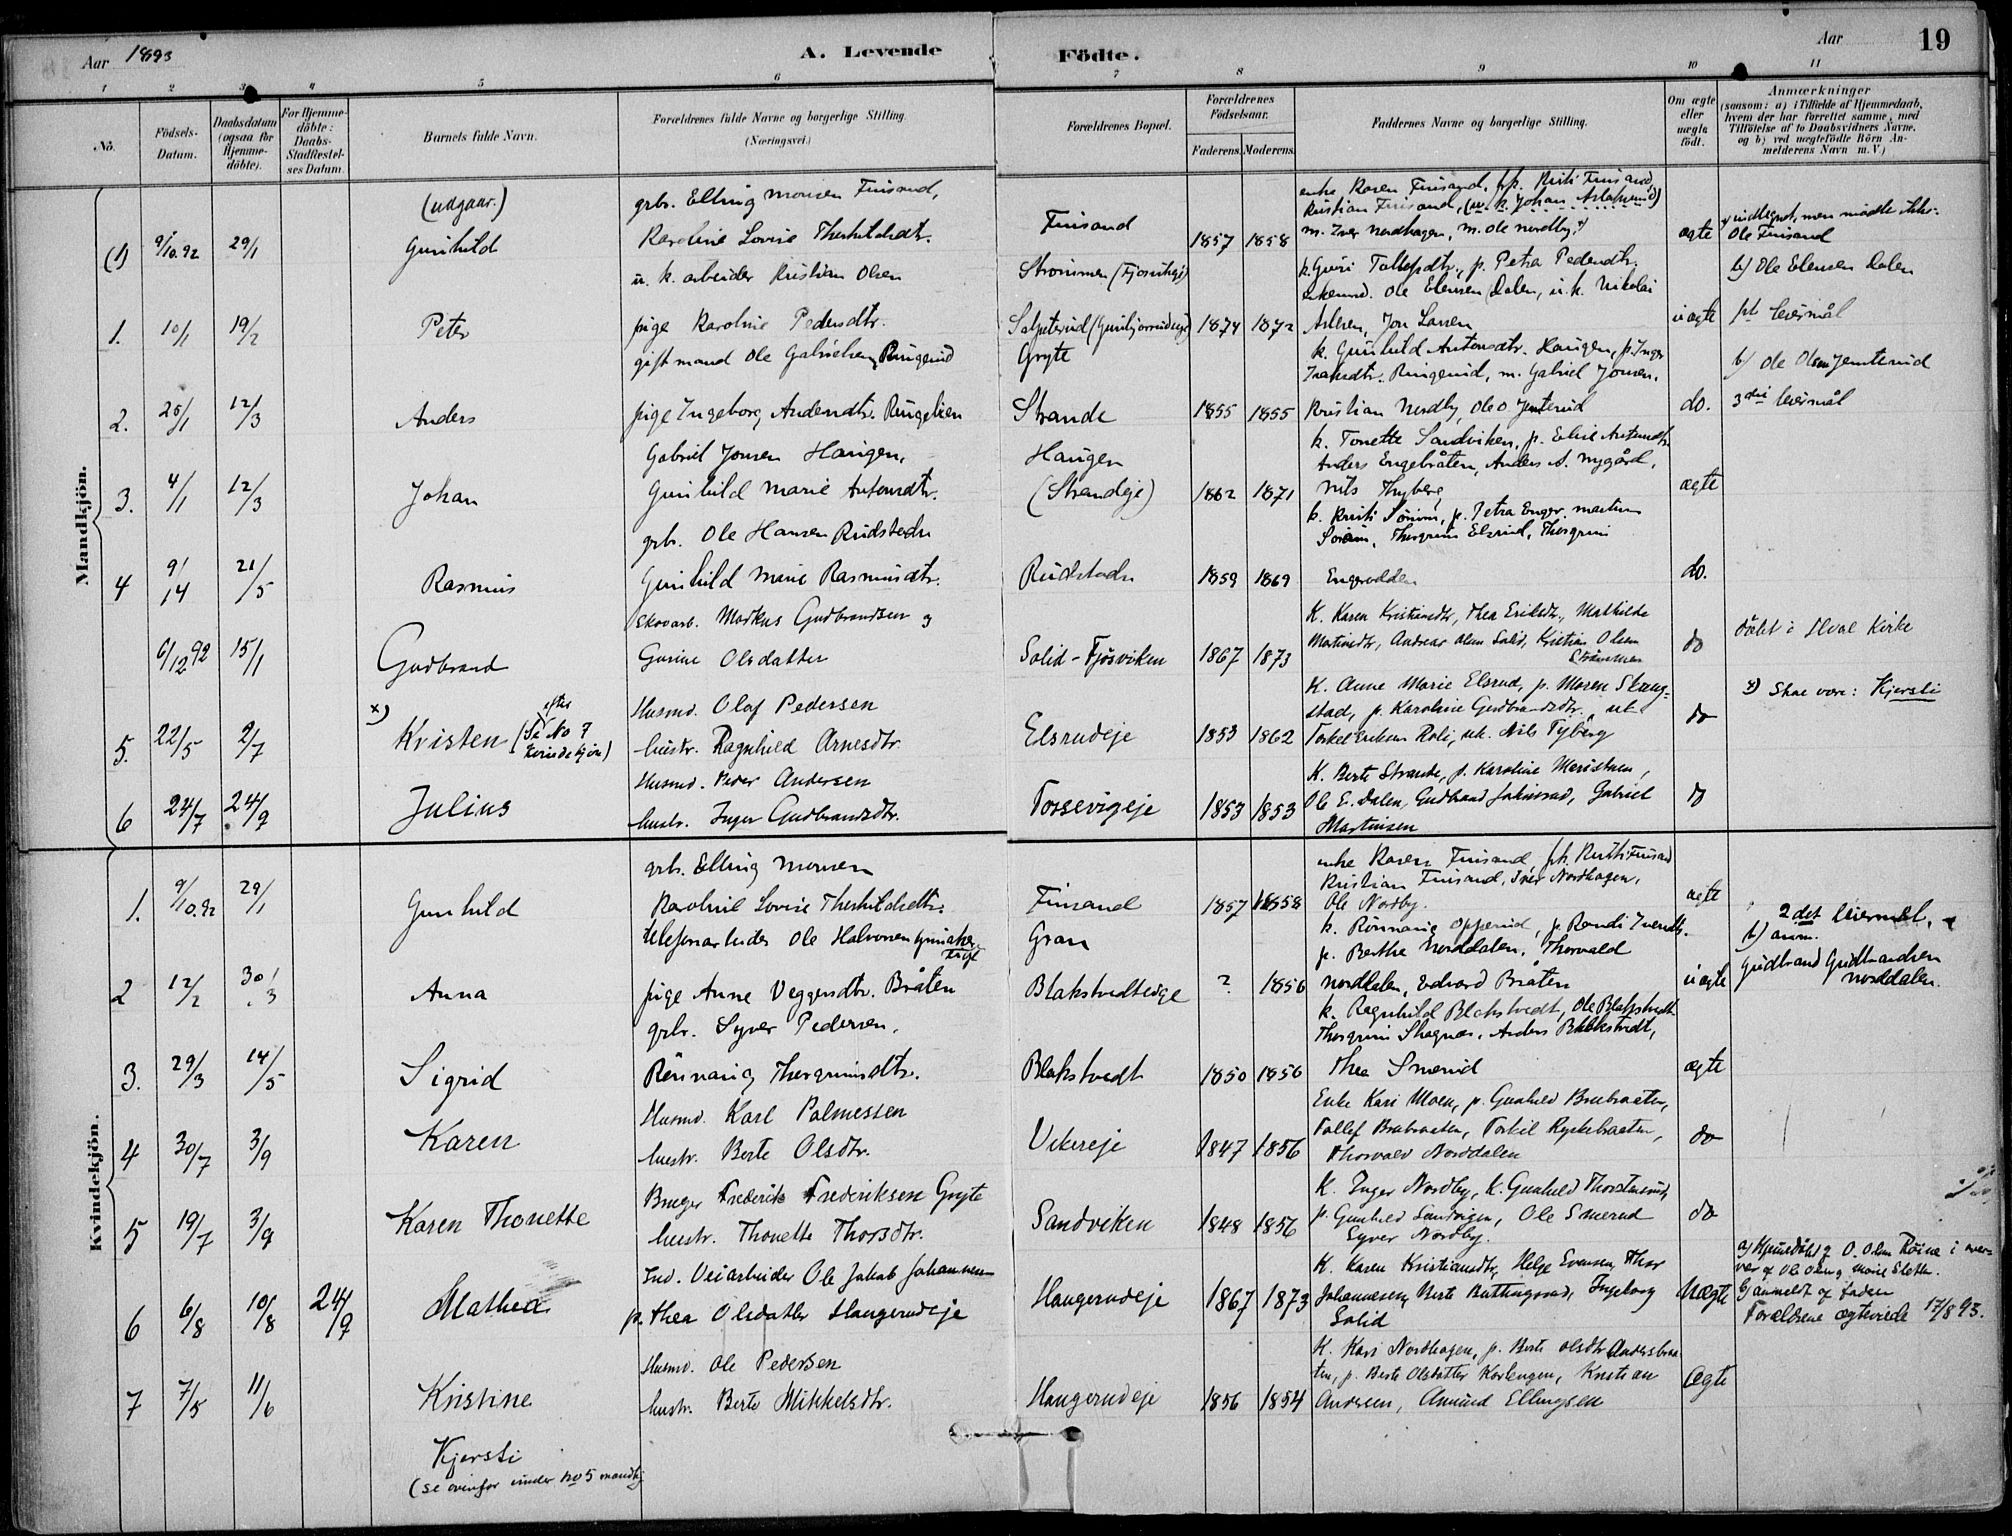 Aar 1893
A. Levende
Födte.
Aar
19
1 2 3 4 5 6 7 8 9 10 11
No.
Födsels-Datum.
Daabsdatum (ogsaa for Hjemmedöbte).
For Hjemmedöbte: Daabs-Stadfæstelses Datum.
Barnets fulde Navn.
Forældrenes fulde Navne og borgerlige Stilling. (Næringsvei.)
Forældrenes Bopæl.
Forældrenes Födselsaar.
Faderens. Moderens.
Faddernes Navne og borgerlige Stilling.
Om ægte eller uægte födt.
Anmærkninger
(saasom: a) i Tilfælde af Hjemmedaab, hvem der har forrettet samme, med Tilföielse af to Daabsvidners Navne, og b) ved uægtefödte Börn Anmelderens Navn m. V.)
Mandkjön.
(udgaar.)
(1) 9/10.92 29/1 Gunhild
grb. Elling Monsen Finsand,
Karoline Lovise Thorkildsdtr.
Finsand 1857 1858
enke Karen Finsand, p. Kristi Finsand,
Kristian Finsand, (u. k. Johan Aslaksrud)
m. Iver Nordhagen, m. Ole Nordby.
ægte
indtegnet, men mødte ikke:
Ole Finsand
1. 10/1 19/2 Peter
u. k. arbeider Kristian Olsen
pige Karoline Pedersdtr.
Strømmen
1874 1872
k. Guri Tollefsdtr., p. Petra Pedersdtr.
enkemd. Ole Elensen Dalen, u. k. Nikolai
Jon Larsen
uægte
b) Ole Elensen Dalen
leiermål
2. 25/1 12/3 Anders
gift mand Ole Gabrielsen Ringerud
pige Ingeborg Andersdtr. Ringelien
Gryte
Strande 1855 1855
k. Gunhild Antonsdtr. Haugen, p. Inger
Ringerud, m. Gabriel Jonsen,
Kristian Nordby, Ole O. Jemterud
do.
b) Ole Olsen Jemterud
3die leiermål
3. 4/1 12/3 Johan
Gabriel Jonsen Haugen,
Gunhild Marie Antonsdtr.
Haugen
(Strandeje) 1862 1871
k. Tonette Sandviken, p. Eline Antonsdtr.
Anders Engebråten, Anders A. Nygård,
Nils Thyberg
ægte
4 9/14 21/5 Rasmus
grb. Ole Hansen Rudstaden
Gunhild Marie Rasmusdtr.
Rudstaden 1859 1869
k. Kristi Sørum, p. Petra Enger, Martin
Sørum, Thorgrim Elsrud, Thorgrim
Engerodden
do.
6/12 92 15/1 Gudbrand
Skovarb. Markus Gudbrandsen og
Gurine Olsdatter
Solid - Fjøsviken 1867 1873
K. Karen Kristiansdtr, Thea Eriksdtr, Mathilde
Martinsdtr, Andreas Olsen Solid, Kristian Olsen
Strømmen
do
døbt i Hval Kirke
5. 22/5 2/7 x) Kristen (Se No 7 efter Kvindekjøn)
Husmd. Olaf Pedersen
hustr. Ragnhild Arnesdtr.
Elsrudeje 1853 1862
K. Anne Marie Elsrud, p. Maren Skaug-
stad, p. Karoline Gudbrandsdtr. uk
Torkel Eriksen Roli, uk. Nils Tyberg
do
x) Skal være: Kjersti
6 24/7 24/9 Julius
Husmd. Peder Andersen
hustr. Inger Gudbrandsdtr.
Tossevigeje 1853 1853
K. Berte Strande, p. Karoline Maristuen,
Ole E. Dalen, Gudbrand Jahnsrud, Gabriel
Martinsen
do
Kvindekjön.
1. 9/10.92 29/1 Gunhild
grb. Elling Monsen
Karoline Lovise Thorkildsdtr.
Finsand 1857 1858
enke Karen Finsand, p. Kristi Finsand
Kristian Finsand, Iver Nordhagen,
Ole Nordby.
ægte
2 12/2 30/3 Anna
telefonarbeider Ole Halvorsen
pige Anne Veggersdtr. Bråten
Gran
Blakstvedteige ? 1856
k. Rønnaug Opperud, p. Randi Iversdtr.
p. Berthe Norddalen, Thorvald
Norddalen, Edvard Bråten
uægte
2det leiermål.
b) anm.
Gudbrand Gudbrandsen
Norddalen.
3. 29/3 14/5 Sigrid
grb. Syver Pedersen,
Rønnaug Thorgrimsdtr.
Blakstvedt 1850 1856
k. Ragnhild Blakstvedt, Ole Blakstvedt
Thorgrim Skagnæs, Anders Blakstvedt,
Thea Smerud
ægte
4 30/7 3/9 Karen
Husmd. Karl Palmesen
hustr. Berte Olsdtr.
Vikereje 1847 1856
Enke Kari Moen, p. Gunhild Brubraaten,
Tollef Brubraaten, Torkil Ryskebraaten,
Thorvald Norddalen
do
5 19/7 3/9 Karen Thonette
Bruger Frederik Frederiksen Gryte
hustr. Thonette Thorsdtr.
Sandviken 1848 1856
K. Inger Nordby, K. Gunhild Thorstensrud,
p. Gunhild Sandvigen, Ole Smerud
Syver Nordby.
do
6 6/8 10/8 24/9 Mathea
Ind. Veiarbeider Ole Jakob Johannesen
p. Thea Olsdatter Haugerudeje
Haugerudeje 1867 1873
K. Karen Kristiansdtr, Helge Evensen, Thor
Johannesen, Berte Buttingsrud, Ingeborg
Solid
Uægte
a) Hjemedøbt af O. Olsen Røine i over-
vær af Ole Olsen og Marie Sletten.
b) anmeldt af faderen
Forældrene ægteviede 17/8 93.
7 7/5 11/6 Kristine
Husmd. Ole Pedersen
hustr. Berte Mikkelsdtr.
Haugerudeje 1856 1854
K. Kari Nordhagen, p. Berte Olsdtr Andersbraa-
ten, p. Berte Olsdatter Korlengen, Kristian
Andersen, Amund Ellingsen
Ægte
Kjersti
(se ovenfor under no 5 mandkj